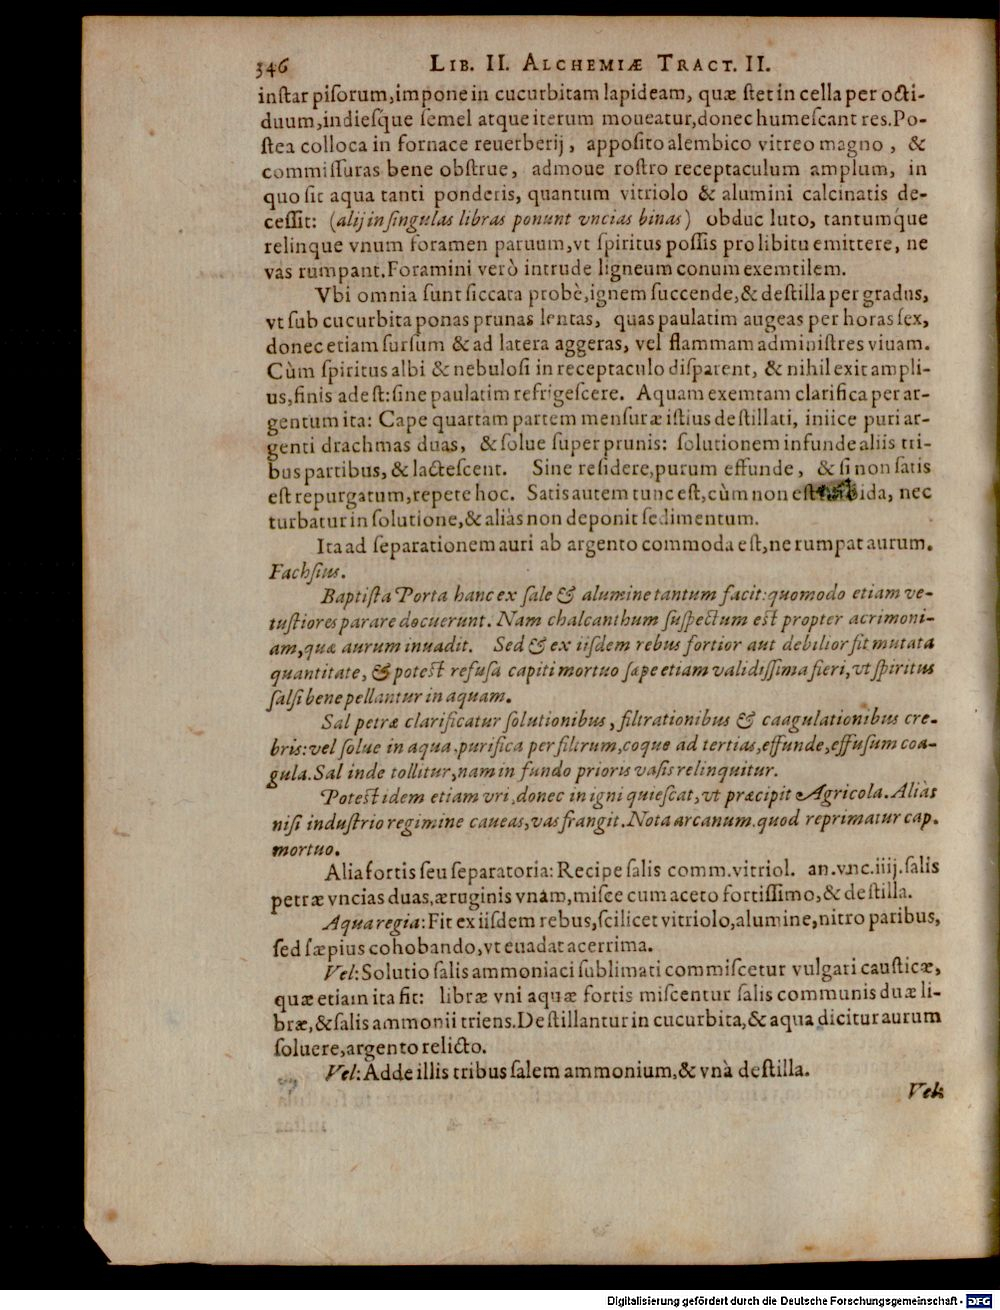 346 LIB. II. ALCHEMIÆ TRACT. II.
inſtar piſorum, impone in cucurbitam lapideam, quæ ſtet in cella per octi-
duum, indieſque ſemel atque iterum moueatur, donec humeſcant res. Po-
ſtea colloca in fornace reuerberij, appoſito alembico vitreo magno, &
commiſſuras bene obſtrue, admoue roſtro receptaculum amplum, in
quo ſit aqua tanti ponderis, quantum vitriolo & alumini calcinatis de-
ceſſit: (alij in ſingulas libras ponunt vncias binas) obduc luto, tantumque
relinque vnum foramen paruum, vt ſpiritus poſſis pro libitu emittere, ne
vas rumpant. Foramini verò intrude ligneum conum exemtilem.
Vbi omnia ſunt ſiccata probè, ignem ſuccende, & deſtilla per gradus,
vt ſub cucurbita ponas prunas lentas, quas paulatim augeas per horas ſex,
donec etiam ſurſum & ad latera aggeras, vel flammam adminiſtres viuam.
Cùm ſpiritus albi & nebuloſi in receptaculo diſparent, & nihil exit ampli-
us, finis adeſt: ſine paulatim refrigeſcere. Aquam exemtam clarifica per ar-
gentum ita: Cape quartam partem menſuræ iſtius deſtillati, iniice puri ar-
genti drachmas duas, & ſolue ſuper prunis: ſolutionem infunde aliis tri-
bus partibus, & lacteſcent. Sine reſidere, purum effunde, & ſi non ſatis
eſt repurgatum, repete hoc. Satis autem tunc eſt, cùm non eſt turbida, nec
turbatur in ſolutione, & aliàs non deponit ſedimentum.
Ita ad ſeparationem auri ab argento commoda eſt, ne rumpat aurum.
Fachſius.
Baptiſta Porta hanc ex ſale & alumine tantum facit: quomodo etiam ve-
tuſtiores parare docuerunt. Nam chalcanthum ſuſpectum eſt propter acrimoni-
am, quæ aurum inuadit. Sed & ex iiſdem rebus fortior aut debilior fit mutata
quantitate, & poteſt refuſa capiti mortuo ſæpe etiam validiſſima fieri, vt ſpiritus
ſalſi bene pellantur in aquam.
Sal petræ clarificatur ſolutionibus, filtrationibus & caagulationibus cre-
bris: vel ſolue in aqua, purifica per filtrum, coque ad tertias, effunde, effuſum coa-
gula. Sal inde tollitur, nam in fundo prioris vaſis relinquitur.
Poteſt idem etiam vri, donec in igni quieſcat, vt præcipit Agricola. Aliàs
niſi induſtrio regimine caueas, vas frangit. Nota arcanum, quod reprimatur cap.
mortuo.
Alia fortis ſeu ſeparatoria: Recipe ſalis comm. vitriol. an. vnc. iiij. ſalis
petræ vncias duas, æruginis vnam, miſce cum aceto fortiſſimo, & deſtilla.
Aqua regia: Fit ex iiſdem rebus, ſcilicet vitriolo, alumine, nitro paribus,
ſed ſæpius cohobando, vt euadat acerrima.
Vel: Solutio ſalis ammoniaci ſublimati commiſcetur vulgari cauſticæ,
quæ etiam ita fit: libræ vni aquæ fortis miſcentur ſalis communis duæ li-
bræ, & ſalis ammonii triens. Deſtillantur in cucurbita, & aqua dicitur aurum
ſoluere, argento relicto.
Vel: Adde illis tribus ſalem ammonium, & vnà deſtilla.
Vel:
Digitalisierung gefördert durch die Deutsche Forschungsgemeinschaft - DFG